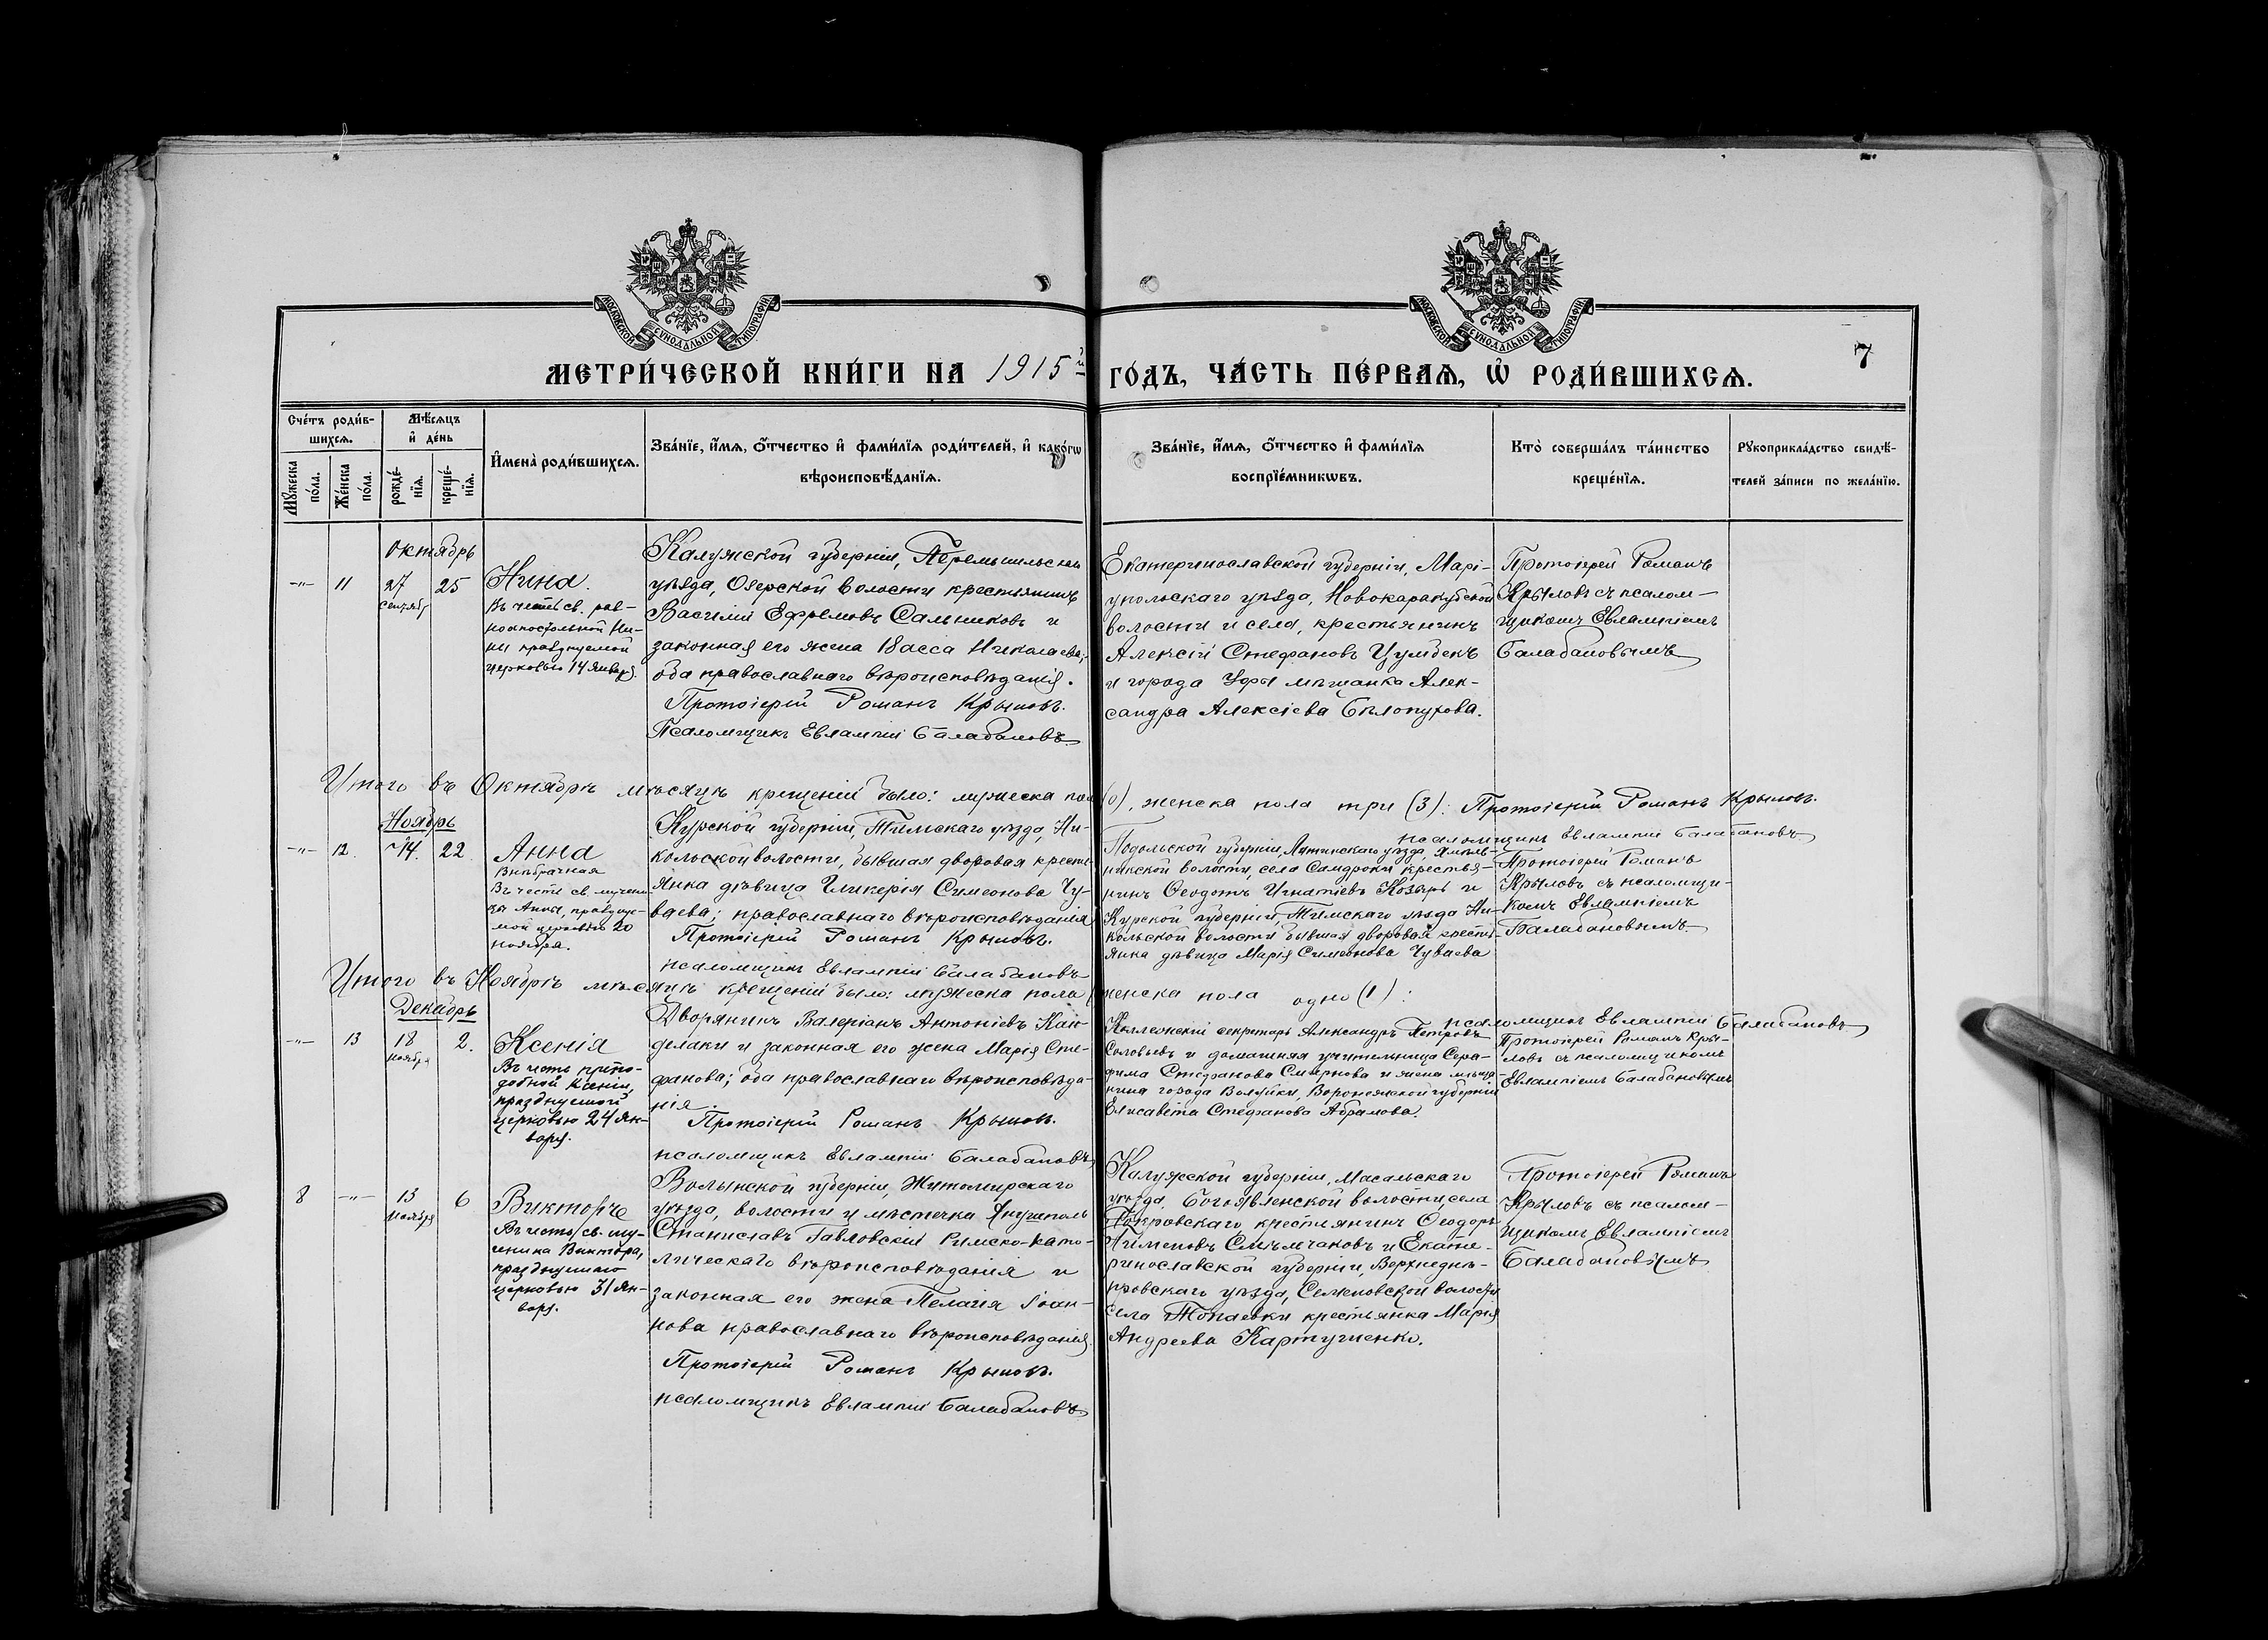 МОСКОВСКОЙ СѴНОДАЛЬНОЙ ТИПОГРАФІИ
МОСКОВСКОЙ СѴНОДАЛЬНОЙ ТИПОГРАФІИ
МЕТРИ́ЧЕСКОЙ КНИ́ГИ НА 1915й ГО́ДЪ, ЧА́СТЬ ПЕ́РВАѦ, Ѡ РОДИ́ВШИХСѦ.
7
Сче́тъ роди́в-
шихсѧ.
Мѣ́сѧцъ
и҆ де́нь
Мꙋ́жеска
по́ла.
Же́нска
по́ла.
рожде́-
нїѧ.
креще́-
нїѧ.
И҆мена̀ роди́вшихсѧ.
Зва́нїе, и҆́мѧ, ѻ҆́тчество и҆ фами́лїѧ роди́телей, и҆ како́гѡ
вѣроисповѣ́данїѧ.
Зва́нїе, и҆́мѧ, ѻ҆́тчество и҆ фами́лїѧ
воспрїе́мникѡвъ.
Кто̀ соверша́лъ та́инство
креще́нїѧ.
Рꙋкоприкла́дство свидѣ́-
телей за́писи по жела́нїю.
Октябрь
-"- 11 27 25
сентябр
Нина.
Въ честь св. рав-
ноапостольной Ни-
ны празднуемой
церковью 14 январ.
Калужской губерніи, Перемышльскаго
уѣзда, Озерской волости крестьянинъ
Василій Ефремовъ Сальниковъ и
законная его жена Васса Николаева;
оба православнаго вѣроисповѣданія.
Протоіерей Романъ Крыловъ.
Псаломщикъ Евлампій Балабановъ
Екатеринославской губерніи, Марі-
упольскаго уѣзда, Новокаракубской
волости и села, крестьянинъ
Алексій Стефановъ Цумбекъ
и города Уфы мѣщанка Алек-
сандра Алексіева Бѣлопухова.
Протоіерей Романъ
Крыловъ съ псалом-
щикомъ Евлампіемъ
Балабановымъ
Итого въ Октябрѣ мѣсяцѣ крещеній было: мужеска пола (0), женска пола три (3): Протоіерей Романъ Крыловъ.
псаломщикъ Евлампій Балабановъ
Ноябрь
-"- 12. 14. 22
Анна
Внѣбрачная
Въ честь св. мучени-
цы Анны, празднуе-
мой церковью 20
ноября.
Курской губерніи, Тимскаго уѣзда, Ни-
кольской волости, бывшая дворовая кресть-
янка дѣвица Гликерія Симеонова Чу-
ваева; православнаго вѣроисповѣданія
Протоіерей Романъ Крыловъ.
псаломщикъ Евлампій Балабановъ
Подольской губерніи, Летинскаго уѣзда,
волости, села Сандроки крестья-
нинъ Ѳеодотъ Игнатіевъ Козырь и
Курской губерніи, Тимскаго уѣзда Ни-
кольской волости бывшая дворовая кресть-
янка дѣвица Марія Симеонова Чуваева
Протоіерей Романъ
Крыловъ съ псаломщи-
комъ Евлампіемъ
Балабановымъ
Итого въ Ноябрѣ мѣсяцѣ крещеній было: мужеска пола женска пола одно (1):
псаломщикъ Евлампій Балабановъ
Декабрь
-"- 13 18 2.
ноября
Ксенія
Въ честь препо-
добной Ксеніи,
празднуемой
церковью 24 Ян-
варя.
Дворянинъ Валеріанъ Антоніевъ Кан-
делаки и законная его жена Марія Сте-
фанова; оба православнаго вѣроисповѣда-
нія.
Протоіерей Романъ Крыловъ.
псаломщикъ Евлампій Балабановъ
Коллежскій секретарь Александръ Петровъ
Соловьевъ и домашняя учительница Сера-
фима Стефанова Смирнова и жена мѣща-
нина города Валуйки, Воронежской губерніи
Елисавета Стефанова Абрамова.
Протоіерей Романъ Кры-
ловъ съ псаломщикомъ
Евлампіемъ Балабановымъ
8 -"- 13 6
ноября
Викторъ
Въ честь св. му-
ченика Виктора,
празднуемаго
церковью 31 Ян-
варя.
Волынской губерніи, Житомирскаго
уѣзда, волости и мѣстечка
Станиславъ Павловскій Римско-като-
лическаго вѣроисповѣданія и
законная его жена Пелагія Іоан-
нова православнаго вѣроисповѣданія.
Протоіерей Романъ Крыловъ.
псаломщикъ Евлампій Балабановъ
Калужской губерніи, Масальскаго
уѣзда, Богоявленской волости, села
Покровскаго крестьянинъ Ѳеодоръ
Пименовъ и Екате-
ринославской губерніи, Верхнеднѣ-
провскаго уѣзда, Семеновской волости
села крестьянка Марія
Андреева Картушенко.
Протоіерей Романъ
Крыловъ съ псалом-
щикомъ Евлампіемъ
Балабановымъ